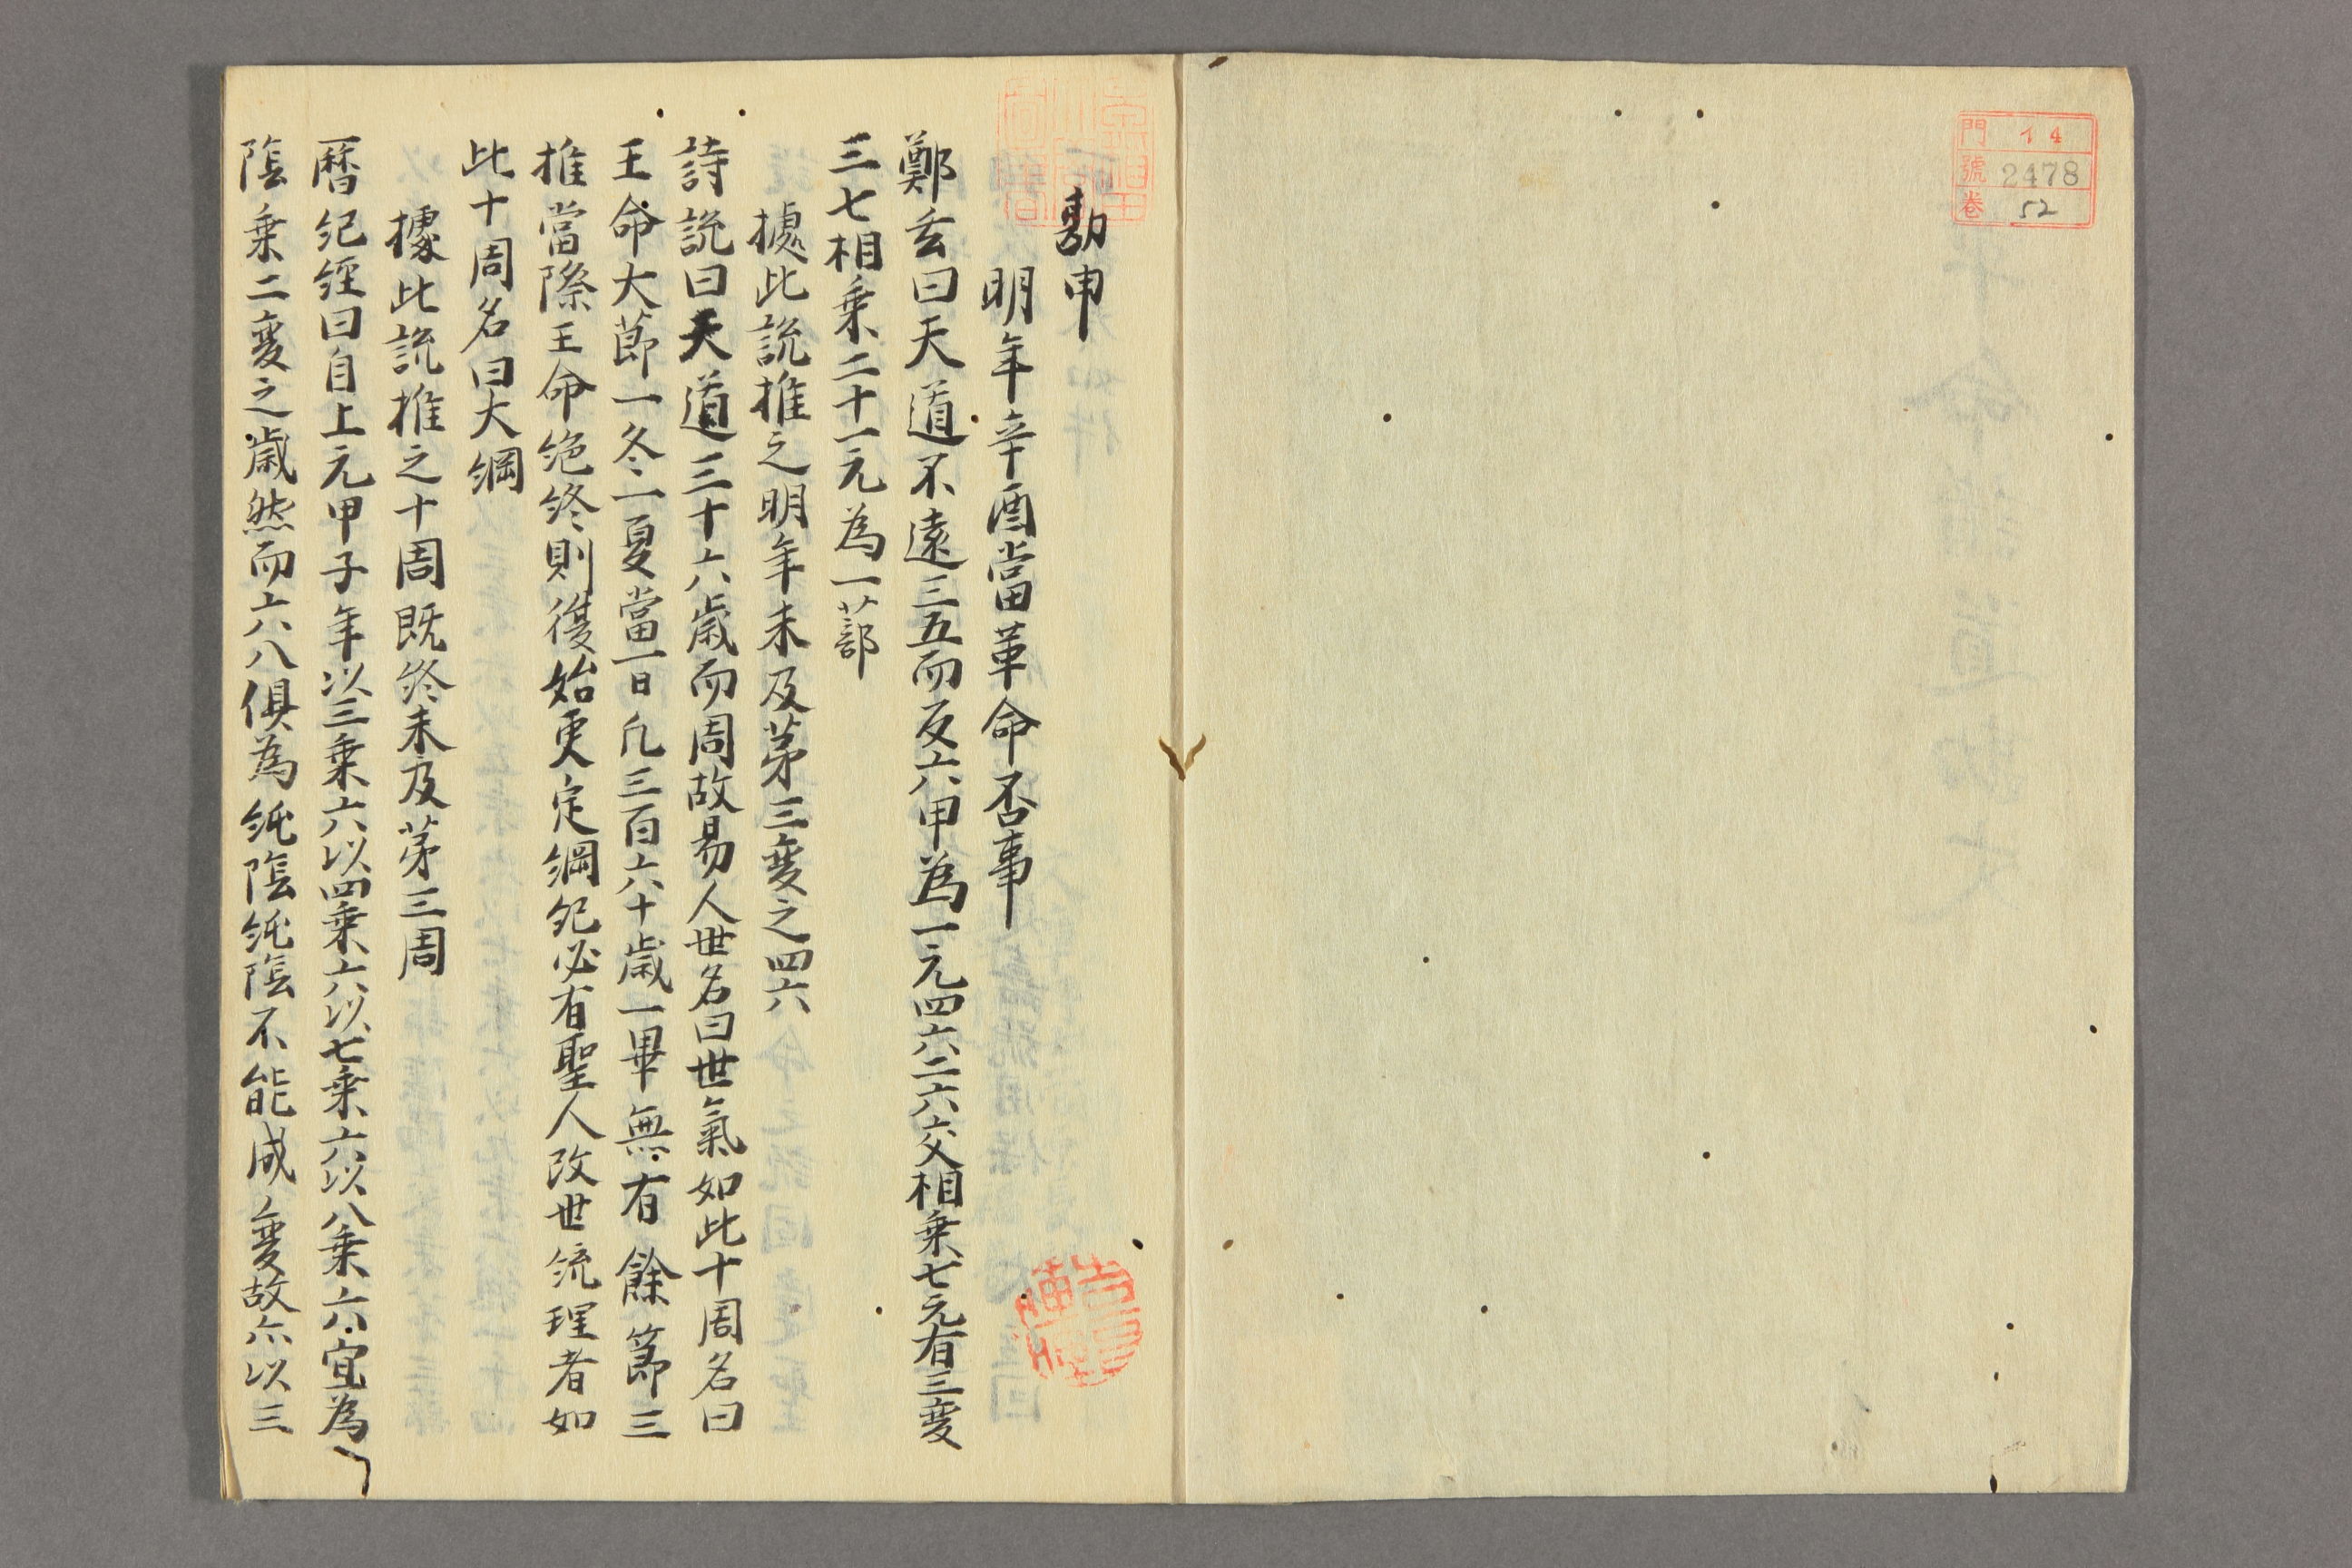 門 イ4
號 2478
卷 52
勘申
明年辛酉當革命否事
鄭玄曰天道不遠三五而反六甲為一元四六二六交相乗七元有三變
三七相乗二十一元為一蔀
據此說推之明年未及苐三變之四六
詩說曰天道三十六歳而周故易人世名曰世氣如此十周名曰
王命大莭一冬一夏當一日凡三百六十歳一畢無有餘節三
推當際王命絶終則復始更定綱紀必有聖人改世統理者如
此十周名曰大綱
據此說推之十周既終未及苐三周
暦紀經曰自上元甲子年以三乗六以四乗六以七乗六以八乗六宜為
陰乗二變之歳然而六八俱為純陰純陰不能成變故六以三